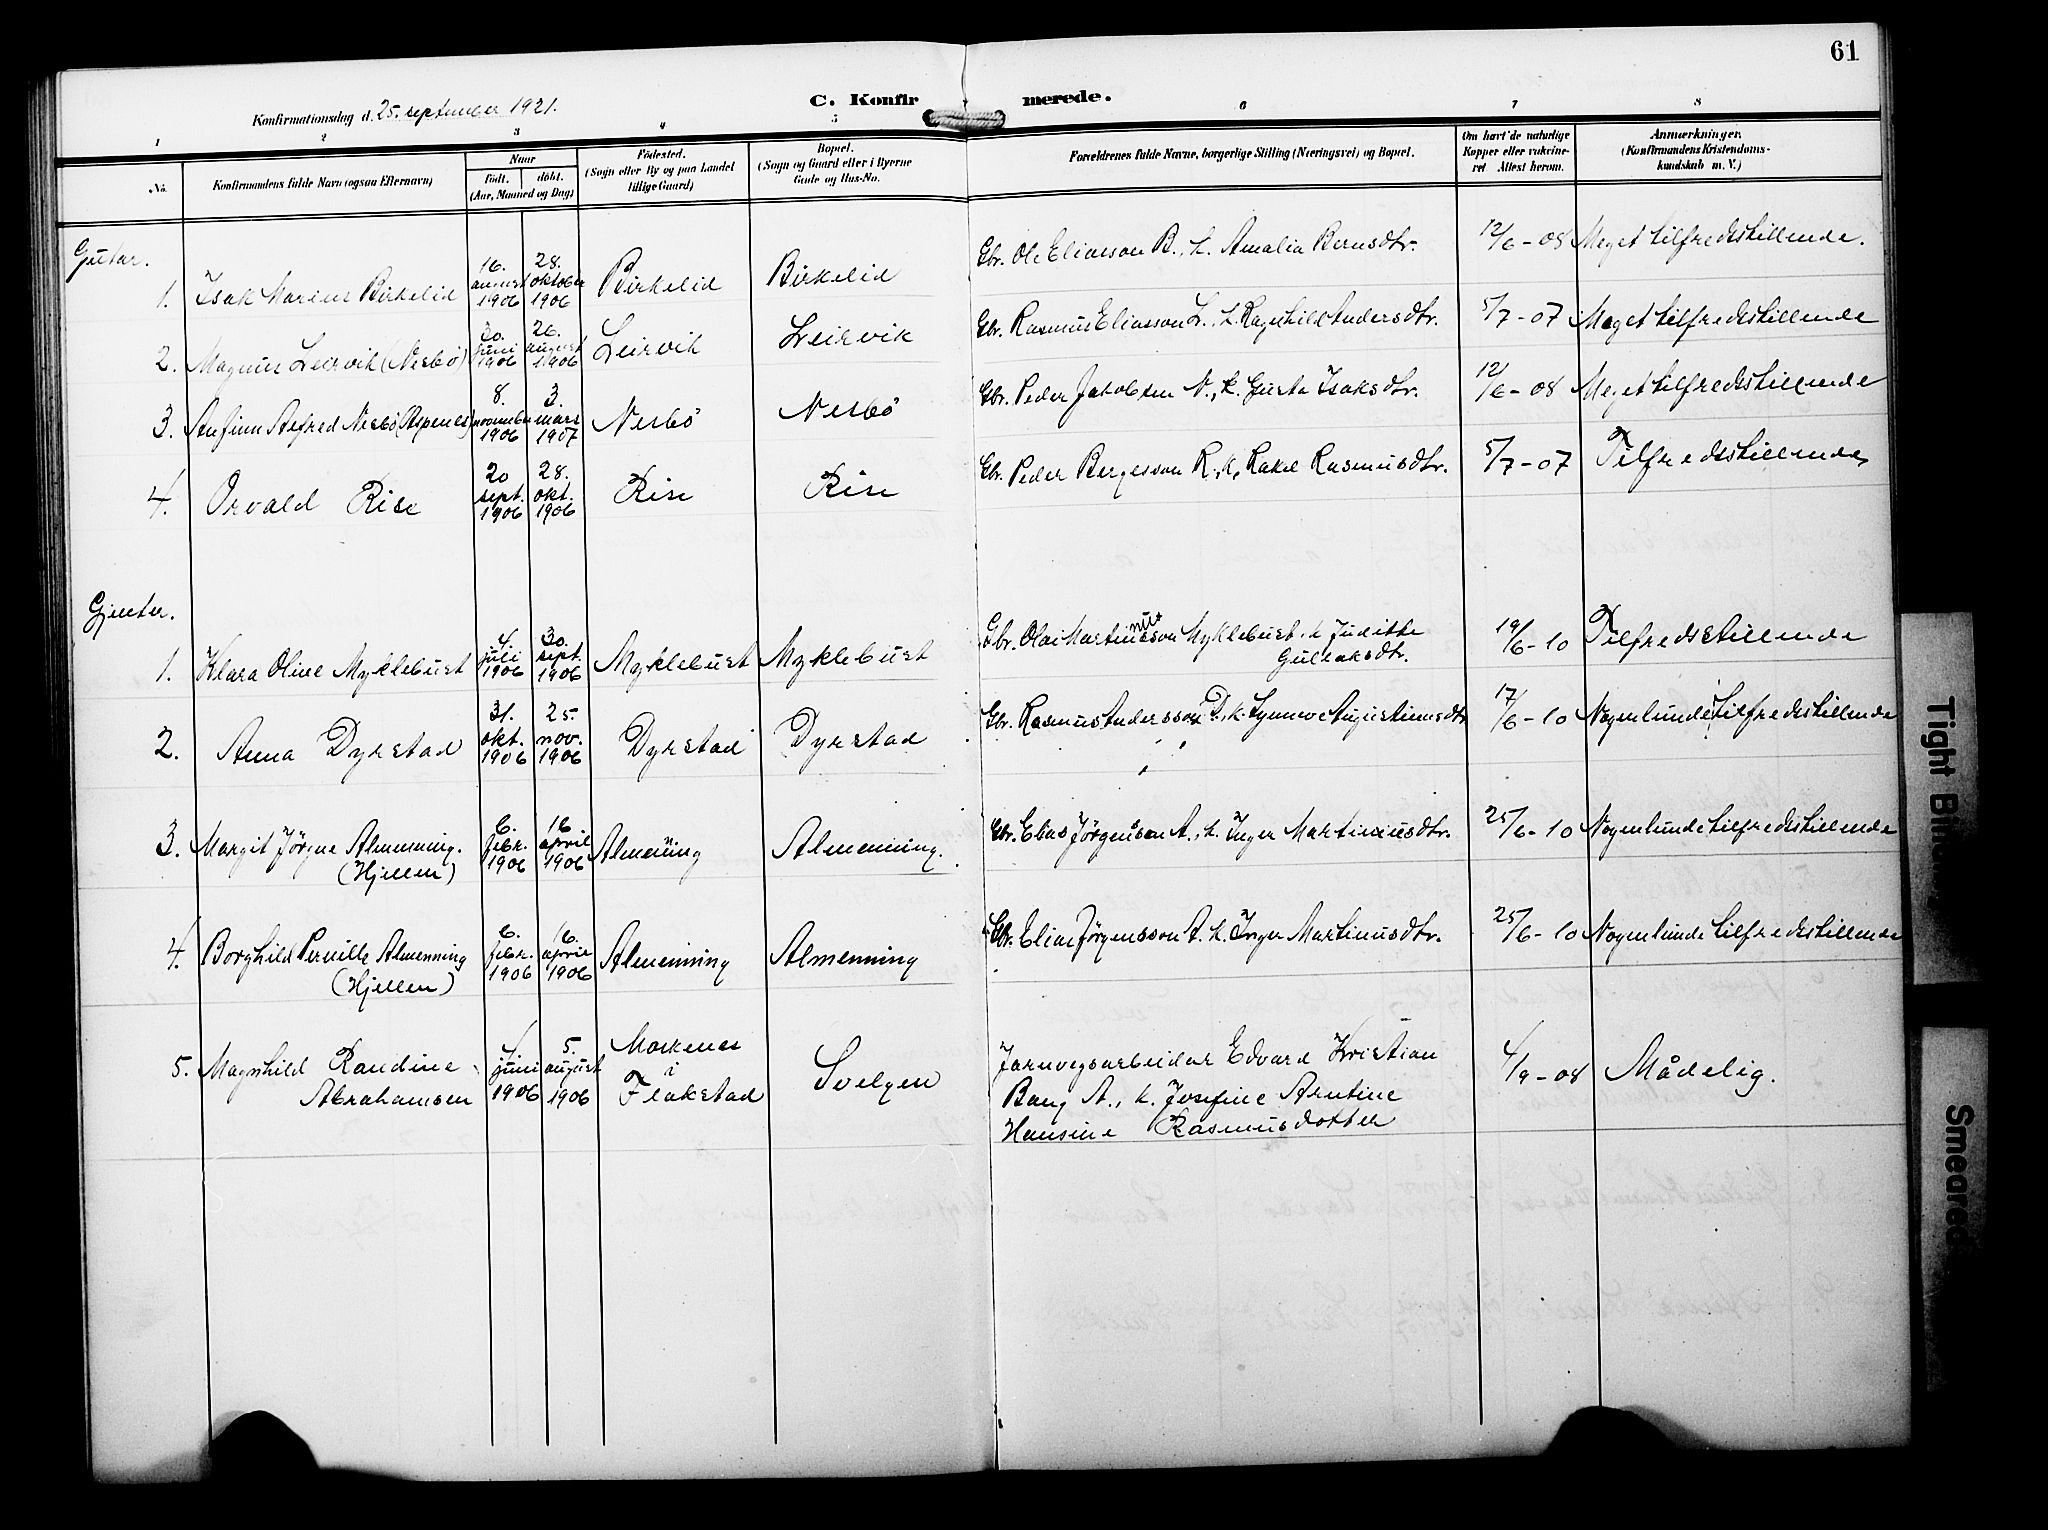 61
C. Konfirmerede.
Konfirmationsdag d. 25. september 1921.
1 2 3 4 5 6 7 8
No.
Konfirmandens fulde Navn (ogsaa Efternavn)
Naar
födt. döbt.
(Aar, Maaned og Dag)
Födested.
(Sogn eller By og paa Landet
tillige Gaard)
Bopæl.
(Sogn og Gaard eller i Byerne
Gade og Hus-No.
Forældrenes fulde Navne, borgerlige Stilling (Næringsvei) og Bopæl.
Om havt de naturlige
Kopper eller vakcine-
ret Attest herom.
Anmærkninger.
(Konfirmandens Kristendoms-
kundskab m. V.)
Gutar.
1. Isak Marius Birkelid 16. august 1906 28. oktober 1906 Birkelid Birkelid Gbr. Ole Eliasson B., k. Amalia Bernsdtr. 12/6-08 Meget tilfredsstillende.
2. Magnus Leirvik (Nesbö) 20. juni 1906 26. august 1906 Leirvik Leirvik Gbr. Rasmus Eliasson L., k. Ragnhild Andersdtr. 5/7-07 Meget tilfredsstillende
3. Anfinn Alfred Nesbö (Aspenes) 8. november 1906 3. mars 1907 Nesbö Nesbö Gbr. Peder Jakobsen N., k. Gusta Isaksdtr. 12/6-08 Meget tilfredsstillende
4. Orvald Rise 20 sept. 1906 28. okt. 1906 Rise Rise Gbr. Peder Bergesson R., k. Rakel Rasmusdtr. 5/7-07 Tilfredsstillende
Gjentur.
1. Klara Oline Myklebust 4. juli 1906 30. sept. 1906 Myklebust Myklebust Gbr. Olai Martinusson Myklebust. k Juditte
Gullaksdtr. 19/6-10 Tilfredsstillende
2. Anna Dyrstad 31. okt. 1906 25. nov. 1906 Dyrstad Dyrstad Gbr. Rasmus Andersson D. k. Synnove Augustinusdtr 17/6-10 Nogenlunde tilfredsstillende
3. Margit Jörgine Almenning.
(Hjellen) 6. febr. 1906 16 april 1906 Almenning Almenning. Gbr. Elias Jörgenson A., k. Inger Martinusdtr. 25/6-10 Nogenlunde tilfredsstillende
4. Borghild Pernille Almenning
(Hjellen) 6. febr. 1906 16. april 1906 Almenning Almenning Gbr. Elias Jörgensson A. k. Inger Martinusdtr. 25/6-10 Nogenlunde tilfredsstillende
5. Magnhild Randine
Abrahamsen juni 1906 5. august 1906 Moskenes
i
Flakstad Svelgen Jarnvegsarbeidar Edvard Kristian
Bang A., k. Josefine Arntine
Hansine Rasmusdotter 4/9-08 Mådelig.
Tight Bin
Smeared